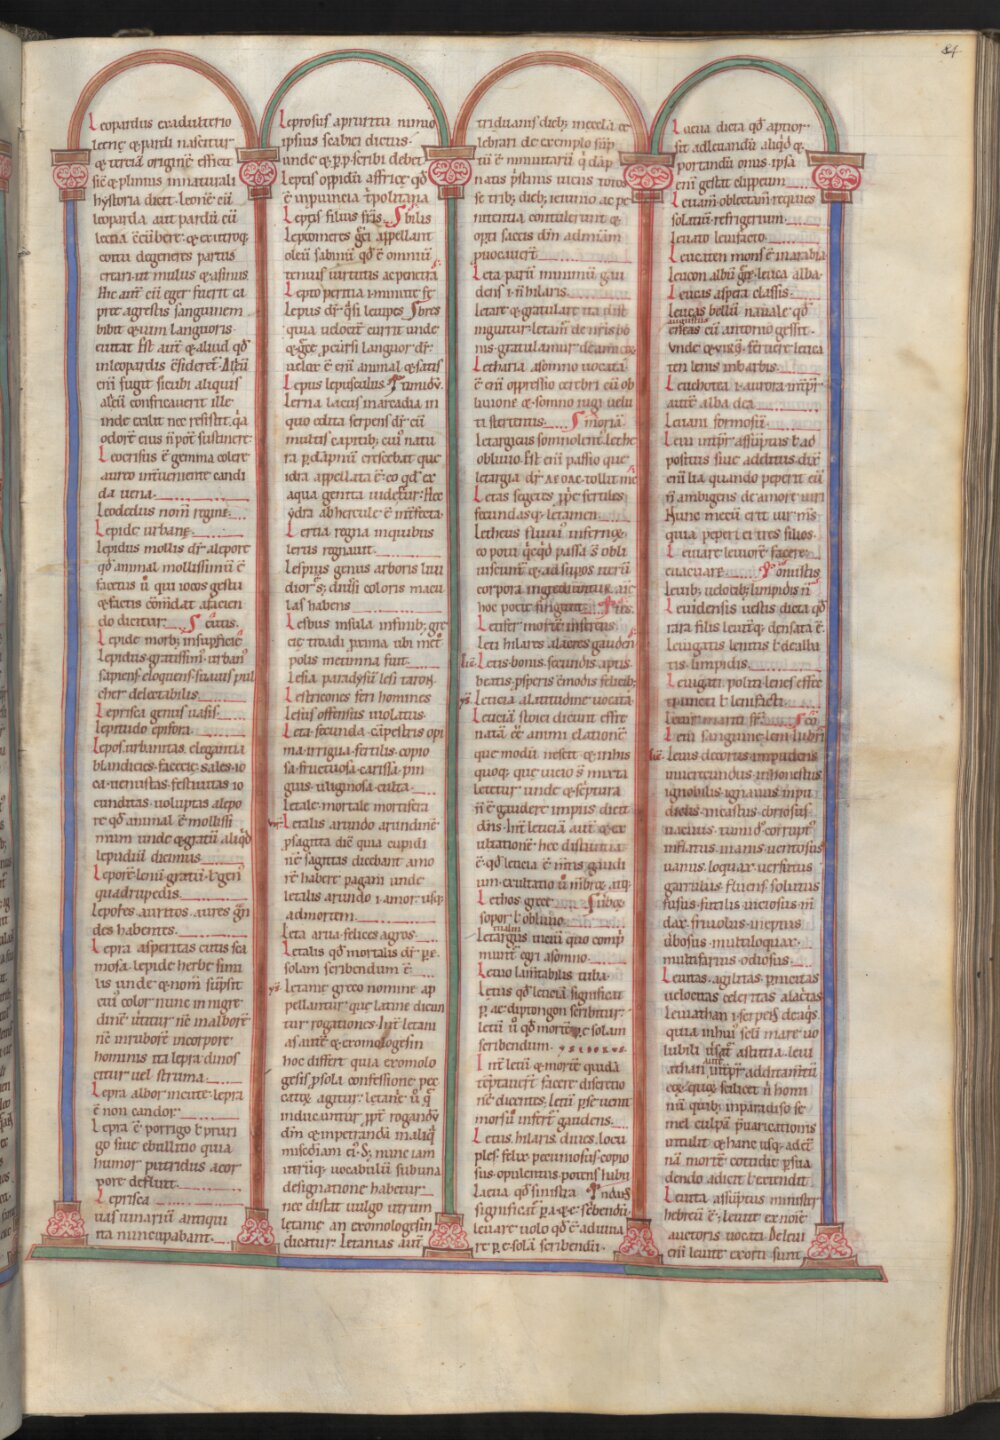 84
Leopardus ex adulterio
leene & pardi nascitur
& tertiā originē efficit
sic̄ & plinius in naturali
hystoria dicit. leonē cū
leoparda aut pardū cū
leena c̄cūbere: & ex utroq;
coitu degeneres partus
creari. ut mulus & asinus.
Hic aut̄ cū eger fuerit ca
pre agrestis sanguinem
bibit & cum languoris
euitat. Est aut̄ & aliud qđ
in leopardis c̄sideret̄. Alliū
eni fugit sicubi aliquis
alliū confricauerit ille
inde exilit nec resistit. q̇a
odorē eius n̄ pot̄ sustinere.
Leocrisus ē gemma colore
aureo interueniente candi
da uena.
Leodedus nom̄ regine.
Lepide urbane.
lepidus mollis dr̄ a lepore
qđ animal mollissimū ē
facetus ů qui iocos gestu
& factis com̄dat a facien
do dicitur. cutis.
Lepide morb; in supficie
Lepidus. gratissim; urban;
sapiens eloquens. suauis pul
cher delectabilis.
Leprisca genus uasis.
lepitudo epifora.
Lepos. urbanitas. elegantia
blandicies. facecie. sales. io
ca. uenustas. festiuitas io
cunditas. uoluptas a lepo
re qđ animal ē mollissi
mum unde & gratū aliqđ
lepidum dicimus.
Leporē lenū. gratū. ł. gen;
quadrupedis.
lepores auritos. aures gn̄
des habentes.
Lepra asperitas cutis sca
mosa. lepide herbe simi
lis unde & nom̄ sūpsit
cui; color nunc in nigre
dinē uertitur nc̄ in alborē
nc̄ in ruborē in corpore
hominis ita lepra dinos
citur uel struma.
Lepra albor in cute. lepra
ē non candor.
Lepra ē porrigo ł pruri
go siue ebullitio quia
humor putridus a cor
pore defluit.
Leprisca
uas uinariū antiqui
ita nuncupabant.
Leprosus a pruritu nimio
ipsius scabiei dictus.
unde & p p scribi debet
leptis oppidū affrice qđ
ē in puincia tripolitana
Leptis filius frīs. bilis
Leptomeres grēci appellant
oleū sabinū qđ ē omniū
tenuis uirtutis ac penetra
Lepto permia. i. minute st̄
lepus dr̄ q̇si leuipes bres
quia uelociter currit unde
& grēce p cursu languor dr̄.
uelox ē eni animal & satis
Lepus lepusculus. timidū.
Lerna lacus in arcadia in
quo edita serpens dr̄ cū
multis capitib; cui; natu
ra p dāpnū crescebat que
idra appellata ē: eo qđ ex
aqua genita uidetur. Hec
ydra ab hercule ē interfecta.
Lertia regna in quibus
lerus regnauit.
lespius genus arboris liui
dioris; diuersi coloris macu
las habens
Lesbus insula in finib; gre
cie troadi proxima. ubi metro
polis metimna fuit.
lesia paradysū. lesi. taron.
Lestricones feri homines
lesus offensus uiolatus.
Leta. fecunda. cāpestris opi
ma irrigua. fertilis. copio
sa. fructuosa. carissa. pin
guis. uliginosa. culta.
letale. mortale mortifera
Letalis arundo arundinē
p sagitta dic̄. quia cupidi
nē sagittas dicebant amo
rē habere pagani unde
letalis arundo. i. amor. usq;
ad mortem.
leta arua. felices agros.
Letalis qđ mortalis dr̄ p e
solam scribendum ē
letanie greco nomine ap
pellantur que latine dicun
tur rogationes. Int̄ letani
as aut̄ & exomologesin
hoc differt quia exomolo
gesis p sola confessione pec
catoꝝ agitur. letanie ů q̄
indicantur ppt̄ rogandū
dm̄ & impetrandā in aliq̇
miscdiam ei;. Sȝ nunc iam
utrūq; uocabulū sub una
designatione habetur
nec distat uulgo utrum
letanie an exomologesin
dicatur. letanias aut̄
triduanis dieb; mecela ce
lebrari de exemplo sūp
tū ē niniuitarū q̇ dāp
natis pristinis uiciis totos
se trib; dieb; ieiunio ac pe
nitentia contulerunt &
opti saccis dm̄ ad miam
puocauert̄
Leta parū minimū gau
dens. i. n̄ hilaris.
letare & gratulare ita dist
inguitur. letam; de nr̄is bo
nis. gratulamur de amicoꝝ
Letharia a somno uocata
ē eni oppressio cerebri cū ob
liuione & somno iugi uelu
ti stertentis. moriā.
letargicus somnolent. lethe
obliuio. Est eni passio que
letargia dr̄.
Letas segetes pp̄e fertiles
fecundasq; letamen.
Letheus fluui; infernoꝝ
eo potu q̇cq̇d passa st̄ obli
uiscunt̄ & ad supos iterū
corpora ingrediuntur. aut
hoc poete fingunt.
Letifer mortē inferens.
leti hilares. alacres gaudētes
Letis. bonis. secundis. aptis.
beatis. pspis cm̄odis felicib;
Leticia a latitudine uocata
Leticiā stoici dicunt effre
natā ee animi elationē
que modū nescit & in his
quoq; que uicio st̄ mixta
letetur unde & scriptura
n̄ ē gaudere impiis dicit
dn̄s. Int̄ leticiā aut̄ & ex
ultationē hec distantia
ē. qđ leticia ē mentis gaudi
um. exultatio ů m̄broꝝ atq;
Lethos grece. ūbre
sopor. ł obliuio.
Letargus uiciū quo comp̄
munt̄ egri a somno.
Letuo lam̄tabilis turba.
Letus qđ leticiā significat
p ae diptongon scribitur.
letū ů qđ mortē p e solam
scribendum.
Int̄ letū & mortē quidā
teptauert̄ facere discretio
nē dicentes. letū p se uenit
morsū inferēt gaudens.
Letus. hilaris. diues. locu
ples. felix. pecuniosus. copio
sus. opulentus. potens. hilari
Laeua qđ sinistra
significat p a & e scribendū.
leuare uolo qđ ē adiuua
re p e solā scribendū.
Laeua dicta qđ aptior
sit ad leuandū aliqđ &
portandū onus. ipsa
eni gestat clippeum.
Leuam̄. oblectam̄. requies
solatiū. refrigerium.
Leuato. leuifacto.
Leucaten mons ē in arabia
leucon. albū. grē. leuca. alba.
Leucas aspera classis.
leucas bellū nauale qđ
augustus
eneas cū antonio gessit.
Vnde & uirg. feruere leuca
ten lenis in barbis.
Leuchotea. i. aurora int̄pr̄
aut̄ē alba dea
Leuiani. formosum.
Leui int̄pr̄. assūptus ł ad
positus siue additus. dix̄
eni lia quando peperit eū
n̄ ambigens de amore uiri
Nunc mecū erit uir m̄s
quia peperi ei tres filios.
Leuiare. leuiorē facere.
euacuare. onustis.
Leuib; uelocib; limpidis n̄
Leuidensis uestis dicta qđ
rara filis leuit̄q; densata ē.
Leuigatis lenitis ł dealba
tis. limpidis.
Leuigati. politi lenes effec
ti puncti ł lenifacti.
Leuir mariti fr̄. co
Leui sanguine len. lubri
Leuis decorus impudens
inuerecundus. inhonestus.
ignobilis. ignauus. inpu
dicus. incastus. ebriosus.
uacuus. tumid;. corrupt;
inflatus. inanis. uentosus
uanus. loquax. uersutus
garrulus. fluens. solutus
fusus. futilis. uiciosus. m̄
dax. friuolus. ineptus.
uerbosus. multiloquax.
multifarius. odiosus.
Leuitas. agilitas. p̄nicitas
uelocitas celeritas alacritas
Leuiathan. i. serpens de aq̇s.
quia in hui; sc̄li mare uo
lubili uersat̄ astutia. leui
athan int̄pr̄ additam̄tū
eoꝝ. quoꝝ. scilicet n̄ homi
nū quib; in paradiso se
mel culpā puaricationis
intulit & hanc usq; ad et̄
nā mortē cottidie p sua
dendo adicit ł extendit
Leuita assūptus minister
hebreū ē: leuite ex noīe
auctoris uocati. De leui
eni leuite exorti sunt